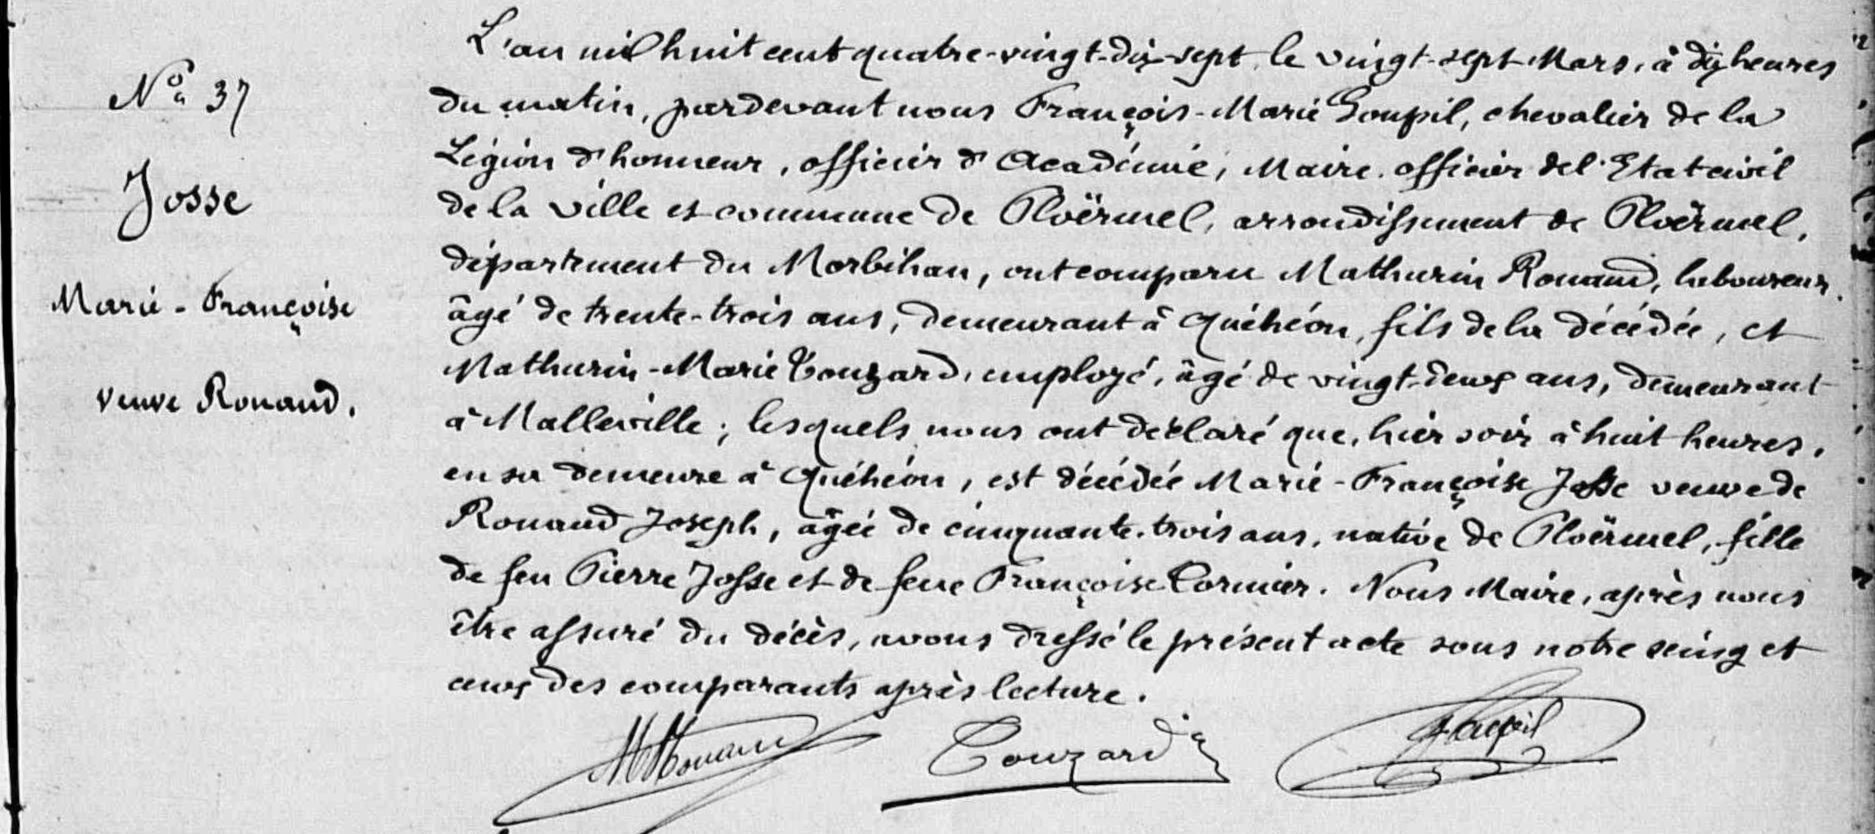 Nº 37
Josse
Marie-Françoise
veuve Rouaud.
L'an mil huit cent quatre-vingt-dix-sept, le vingt-sept Mars, à dix heures
du matin, pardevant nous François-Marie Goupil, chevalier de la
Légion d'honneur, officier d'Académie, Maire, officier de l'Etat civil
de la ville et commune de Ploërmel, arrondissement de Ploërmel,
département du Morbihan, ont comparu Mathurin Rouaud, laboureur,
âgé de trente-trois ans, demeurant à Quéhéon, fils de la décédée, et
Mathurin-Marie Touzard, employé, âgé de vingt-deux ans, demeurant
à Malleville; lesquels nous ont déclaré que, hier soir à huit heures,
en sa demeure à Quéhéon, est décédée Marie-Françoise Josse veuve de
Rouaud Joseph, âgée de cinquante-trois ans, native de Ploërmel, fille
de feu Pierre Josse et de feue Françoise Cormier. Nous Maire, après nous
être assuré du décès, avons dressé le présent acte sous notre seing et
ceux des comparants après lecture.
M Rouaud Touzard Goupil